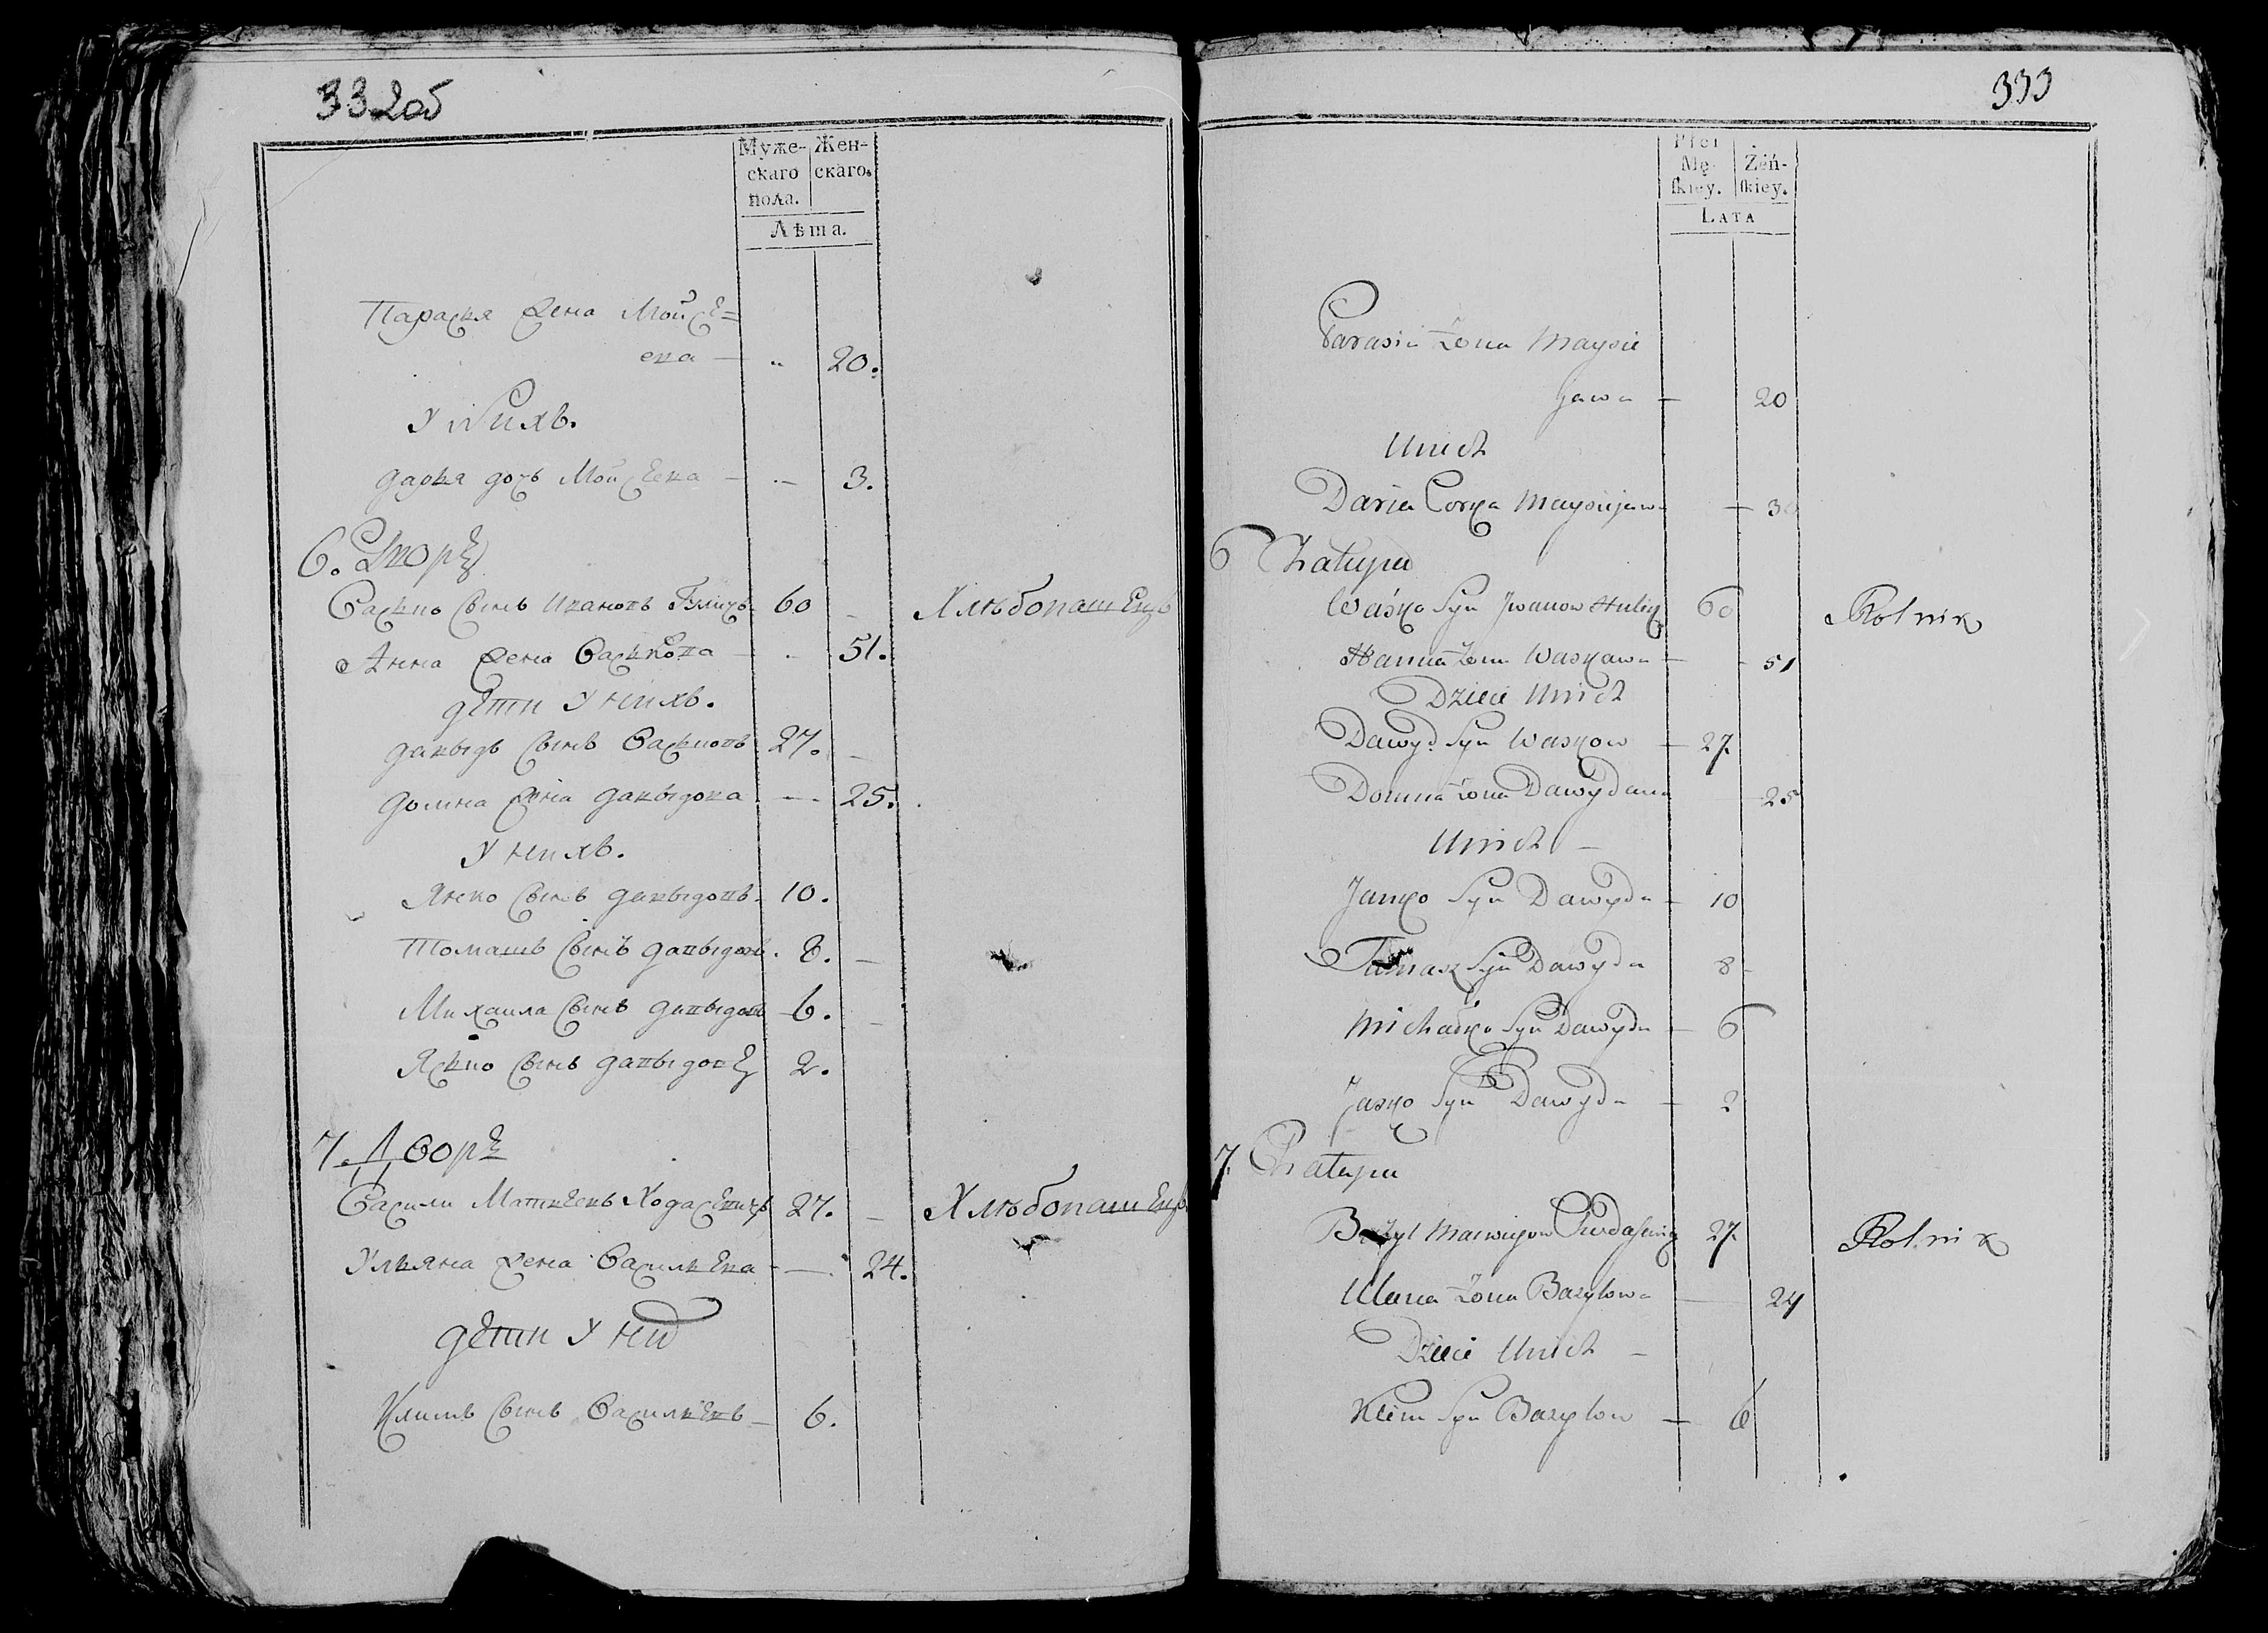 332об
Муже-
скаго
пола.
Жен-
скаго.
Лѣта.
Параскя жена Мойсе=
ева — „ 20.
У Нихъ.
Даря дочъ Мойсеева — — 3.
6. Дворъ
Васько сынъ Ивановъ 60 Хлѣбопашецъ
Анна жена Васькова — 51.
дети У нихъ.
давыдъ сынъ Васьковъ 27.
домна жена давыдова — 25.
У нихъ.
Янко сынъ давыдовъ 10.
Томашъ сынъ давыдовъ. 8.
Михаила сынъ давыдовъ 6.
Яско сынъ давыдовъ 2.
7. Дворъ
Васили Матвеевъ Ходасевичъ 27. Хлѣбопашецъ
Ульяна жена Васильева — 24.
дети У них
Климъ сынъ Васильевъ — 6.
333
Płci
Mę-
skiey.
Żeń-
skiey.
LATA
Parasia Żona Maysie
jawa — 20
Unich
Daria Corka Maysiejawa — 3
6 Chatupa
Waśko Syn Jwanow Hulicz 60 Rolnik
Hanna Żona Waskawa — 51
Dzieci Unich
Dawyd Syn Waskow — 27
Domna żona Dawydawa 25
Unich —
Janko Syn Dawyda — 10
Tamasz Syn Dawyda 8
Michałko Syn Dawyda — 6
Jasko Syn Dawyda — 2
7. Chatupa
Bazyl Maćwiejow Chodasewicz 27. Rolnik
Ulana Żona Bazylowa — 24
Dzieci Unich —
Klim Syn Bazylow — 6